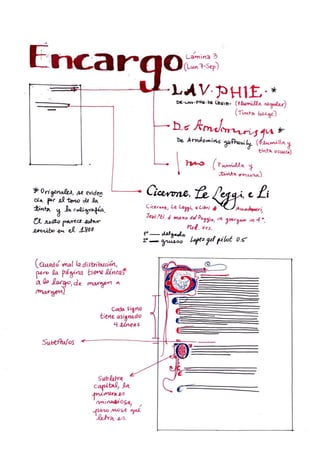 Encargo
Lámina 3
(Lun 7-Sep)
LAV·PHIE·*
(Plumilla regular)
(Tinta beige)
De Armdomini gu *
De Armdomins (Plumilla y
tinta oscura)
(Plumilla y
tinta oscura)
* Originales, se eviden
cia por el tono de la
tinta y la caligrafía.
El resto parece estar
escrito en el 1800
Cicerone, Le Leggi e Li
Cicerone, Le Leggi, e Libri
a mano del Poggio, in 4º.
1º — delgado
2º — grueso Lapiz gel pilot 0.5
(Quedó mal la distribución,
pero la página tiene líneas
a lo largo, de margen a
margen)
Cada signo
tiene asignado
4 líneas
Subtítulos
Subletra
capital, la
primera es
minuciosa,
qué
letra es.